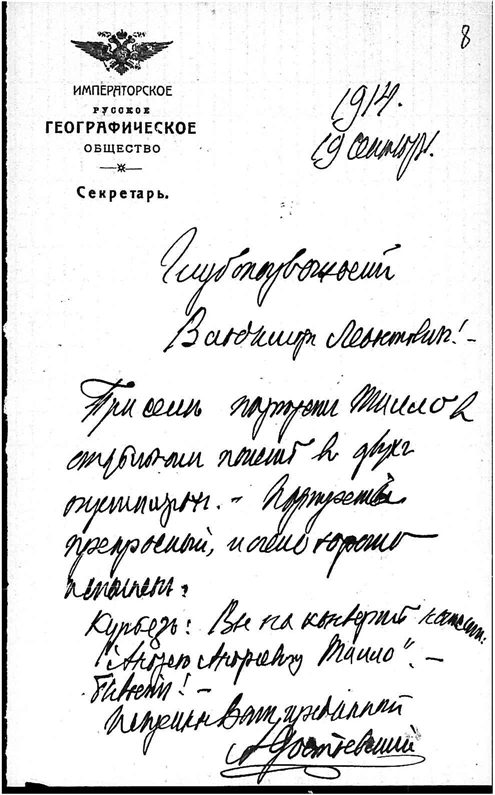 8
ИМПЕРАТОРСКОЕ
РУССКОЕ
ГЕОГРАФИЧЕСКОЕ
ОБЩЕСТВО
Секретарь.
1914.
19 сентябр.
Глубокоуважаемый
Владимир Леонтьевич! –
При сем портрет Тилло в
в двух
экземплярах. – Портрет
прекрасный, и очень хорошо
Курьез: Вы на конверте
"Андрею Андреевичу Тилло". –
Бывает! –
Искренно Вам преданный
А Достоевский